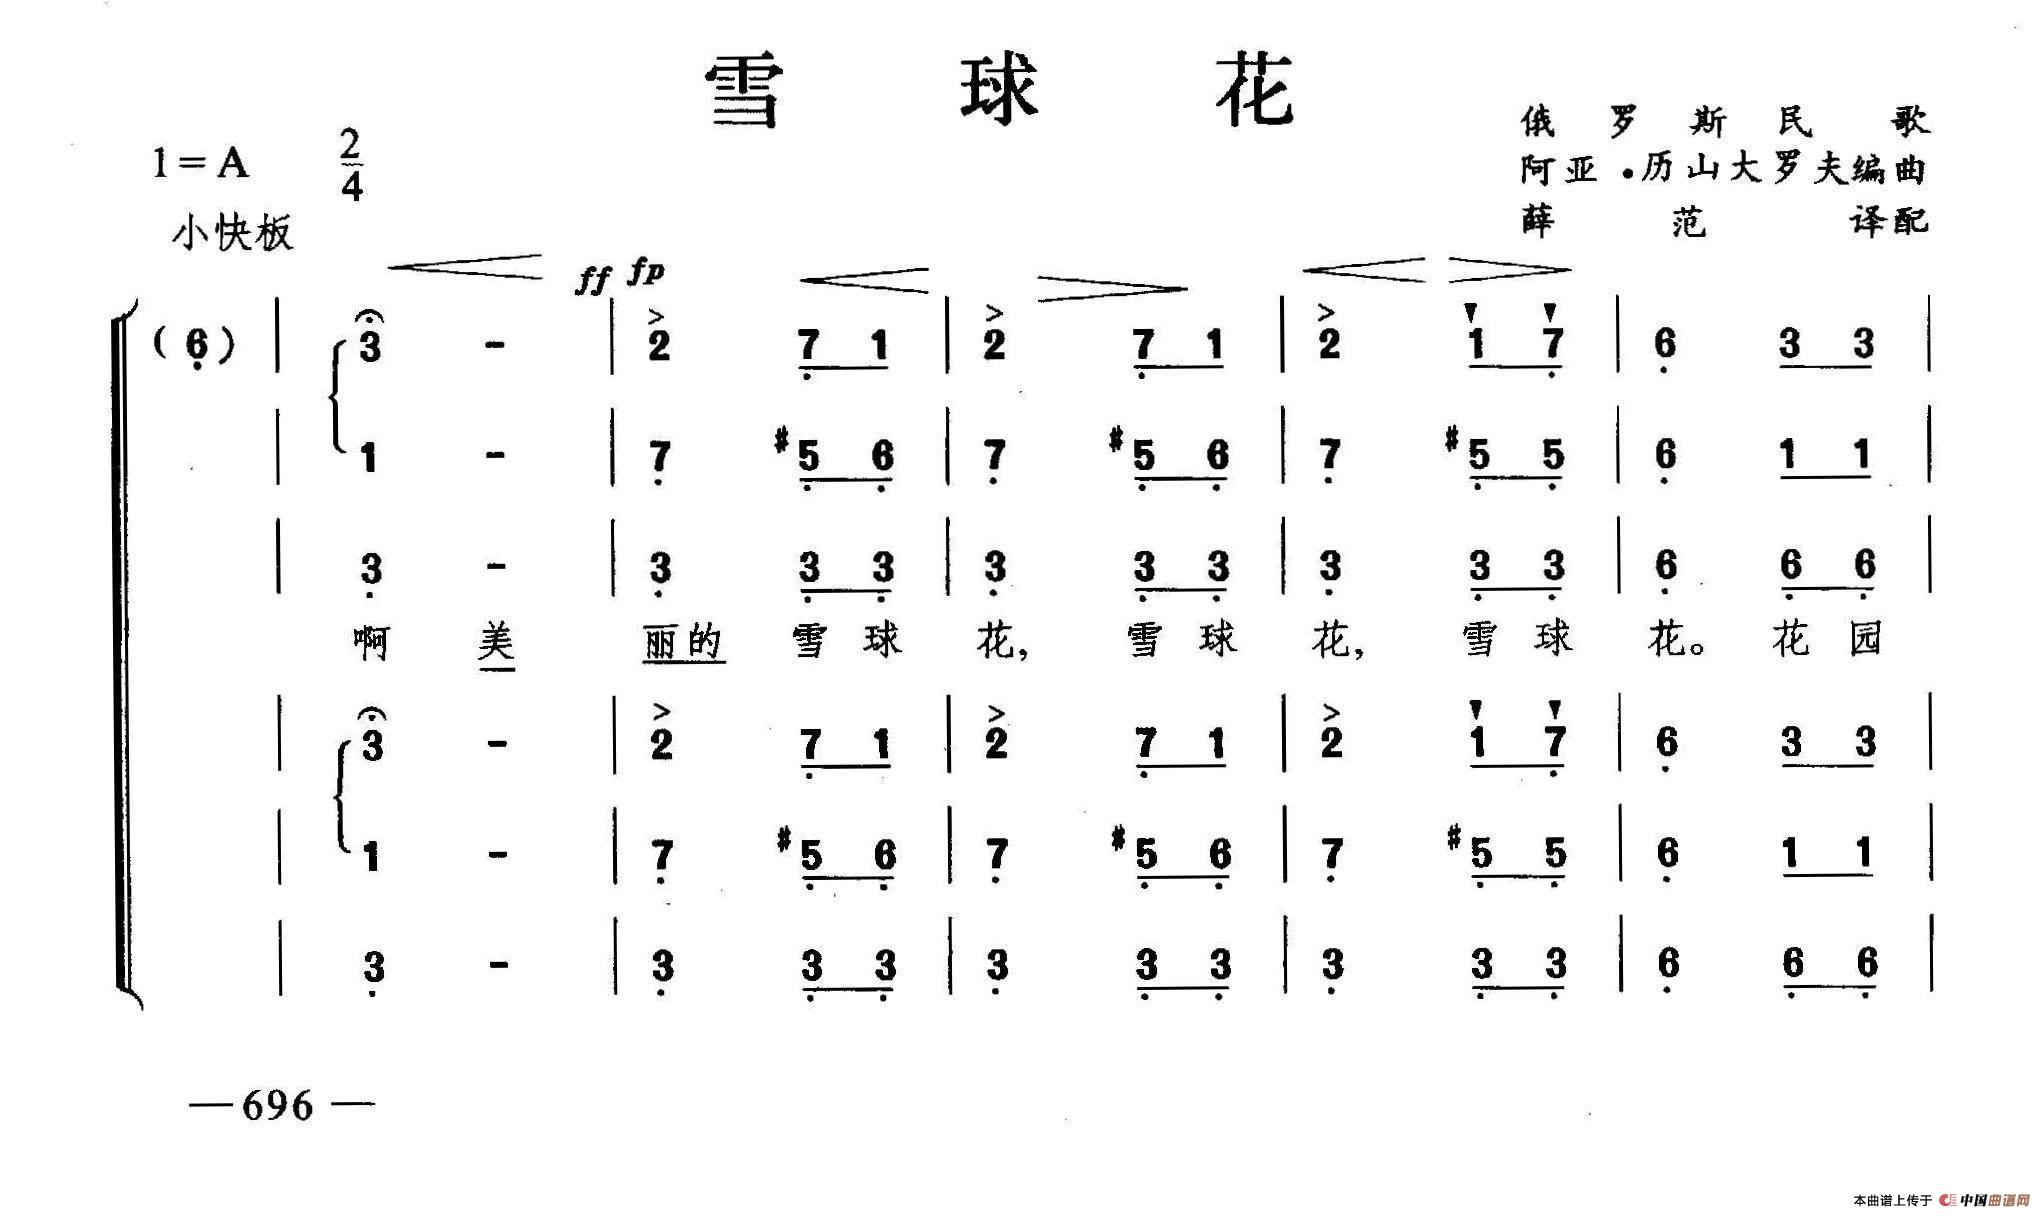 雪 球 花
俄罗斯民歌
1=A 2/4
阿亚·历山大罗夫编曲
小快板
薛范译配
ff fp
(6̣) | 3 - | 2 7̣ 1 | 2 7̣ 1 | 2 1 7̣ | 6̣ 3 3 |
1 - | 7̣ #5̣ 6̣ | 7̣ #5̣ 6̣ | 7̣ #5̣ 5̣ | 6̣ 1 1 |
3̣ - | 3̣ 3̣ 3̣ | 3̣ 3̣ 3̣ | 3̣ 3̣ 3̣ | 6̣ 6̣ 6̣ |
啊 美 丽的 雪 球 花, 雪 球 花, 雪 球 花。 花 园
3 - | 2 7̣ 1 | 2 7̣ 1 | 2 1 7̣ | 6̣ 3 3 |
1 - | 7̣ #5̣ 6̣ | 7̣ #5̣ 6̣ | 7̣ #5̣ 5̣ | 6̣ 1 1 |
3̣ - | 3̣ 3̣ 3̣ | 3̣ 3̣ 3̣ | 3̣ 3̣ 3̣ | 6̣ 6̣ 6̣ |
— 696 —
本曲谱上传于 中国曲谱网